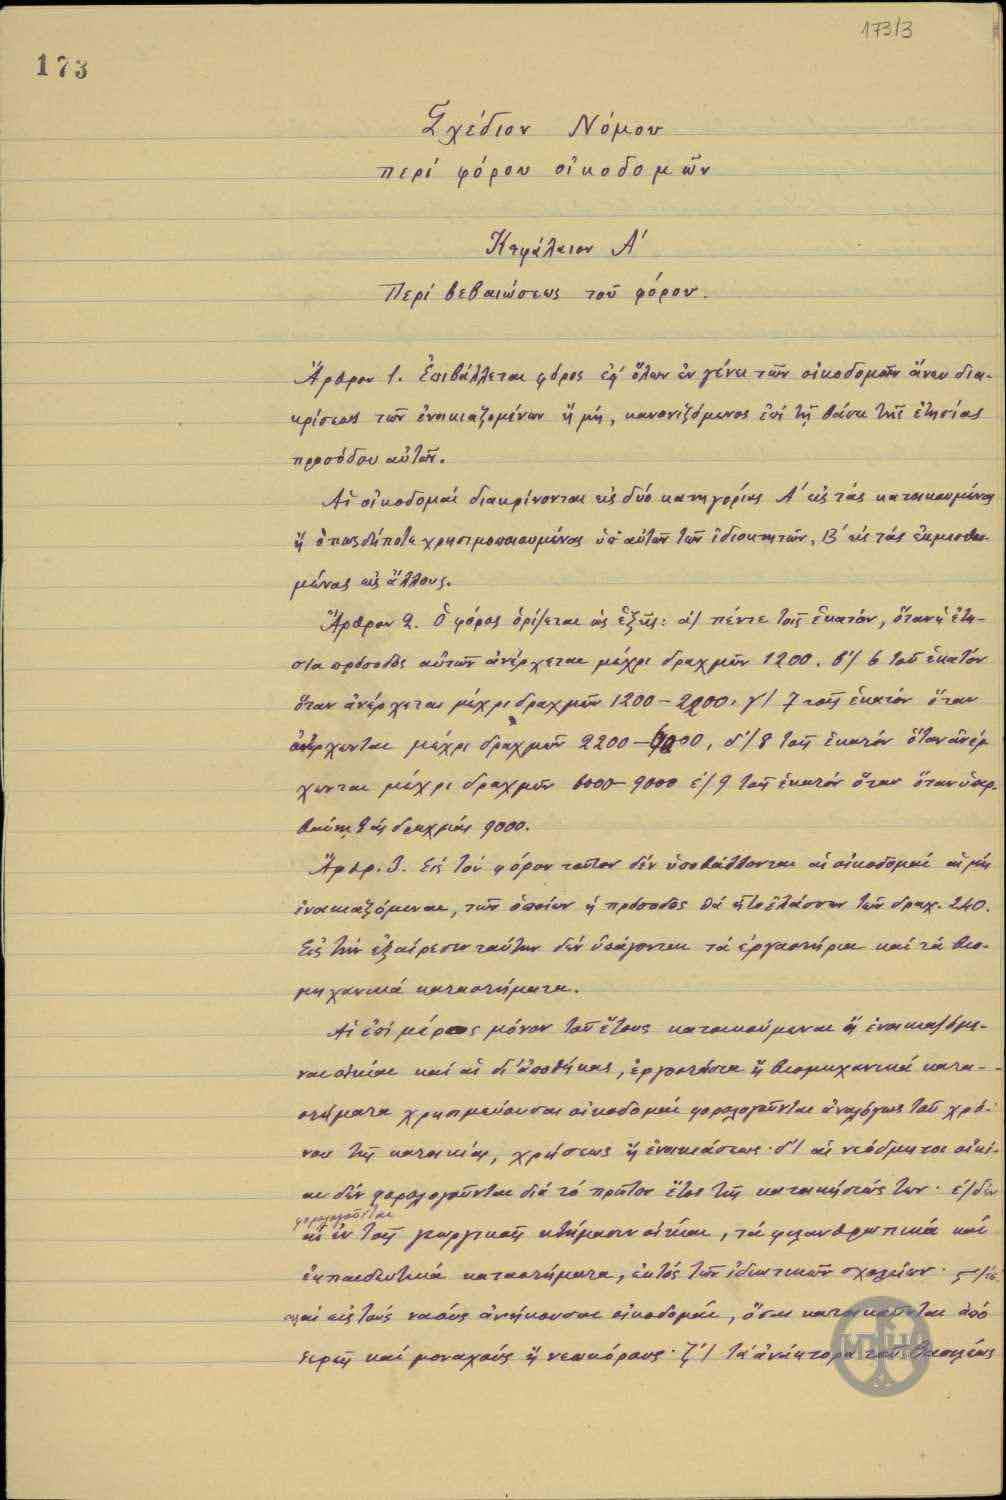 173/3
173
Σχέδιον Νόμου
περί φόρου οἰκοδομῶν
Κεφάλαιον Α'
Περί βεβαιώσεως τοῦ φόρου.
Ἄρθρον 1. Ἐπιβάλλεται φόρος ἐφ' ὅλων ἐν γένει τῶν οἰκοδομῶν ἄνευ δια-
κρίσεως τῶν ἐνοικιαζομένων ἤ μή, κανονιζόμενος ἐπί τῇ βάσει τῆς ἐτησίας
προσόδου αὐτῶν.
Αἱ οἰκοδομαί διακρίνονται εἰς δύο κατηγορίας Α' εἰς τάς κατοικουμένας
ἤ ὁπωσδήποτε χρησιμοποιουμένας ὑπ' αὐτῶν τῶν ἰδιοκτητῶν, Β' εἰς τάς ἐκμισθω-
μένας εἰς ἄλλους.
Ἄρθρον 2. Ὁ φόρος ὁρίζεται ὡς ἑξῆς: α/ πέντε τοῖς ἑκατόν, ὅταν ἡ ἐτη-
σία πρόσοδος αὐτῶν ἀνέρχεται μέχρι δραχμῶν 1200. β'/ 6 τοῖς ἑκατόν
ὅταν ἀνέρχεται μέχρι δραχμῶν 1200-2200. γ/ 7 τοῖς ἑκατόν ὅταν
ἀνέρχωνται μέχρι δραχμῶν 2200- , δ'/ 8 τοῖς ἑκατόν ὅταν ἀνέρ
χωνται μέχρι δραχμῶν 6000-9000 ε'/ 9 τοῖς ἑκατόν ὅταν ὅταν ὑπερ-
βαίνῃ τάς δραχμάς 9000.
Ἄρθρ. 3. Εἰς τόν φόρον τοῦτον δέν ὑποβάλλονται αἱ οἰκοδομαί αἱ μή
ἐνοικιαζόμεναι, τῶν ὁποίων ἡ πρόσοδος θά ἦτο ἐλάσσων τῶν δραχ. 240.
Εἰς τήν ἐξαίρεσιν ταύτην δέν ὑπάγονται τά ἐργαστήρια καί τά βιο-
μηχανικά καταστήματα.
Αἱ ἐπί μέρος μόνον τοῦ ἔτους κατοικούμεναι ἤ ἐνοικιαζόμε-
ναι οἰκίαι καί αἱ δι' ἀποθήκας, ἐργοστάσια ἤ βιομηχανικά κατα-
στήματα χρησιμεύουσαι οἰκοδομαί φορολογοῦνται ἀναλόγως τοῦ χρό-
νου τῆς κατοικίας, χρήσεως ἤ ἐνοικιάσεως· δ'/ αἱ νεόδμητοι οἰκί-
αι δέν φορολογοῦνται διά τό πρῶτον ἔτος τῆς κατοικήσεώς των· ε/ δέν
φορολογοῦνται
αἱ ἐν τοῖς γεωργικοῖς κτήμασιν οἰκίαι, τά φιλανθρωπικά καί
ἐκπαιδευτικά καταστήματα, ἐκτός τῶν ἰδιωτικῶν σχολείων·
αἱ εἰς τούς ναούς ἀνήκουσαι οἰκοδομαί, ὅσαι κατοικοῦνται ἀπό
ἱερεῖς καί μοναχούς ἤ νεωκόρους· ζ'/ τά ἀνάκτορα τοῦ Βασιλέως